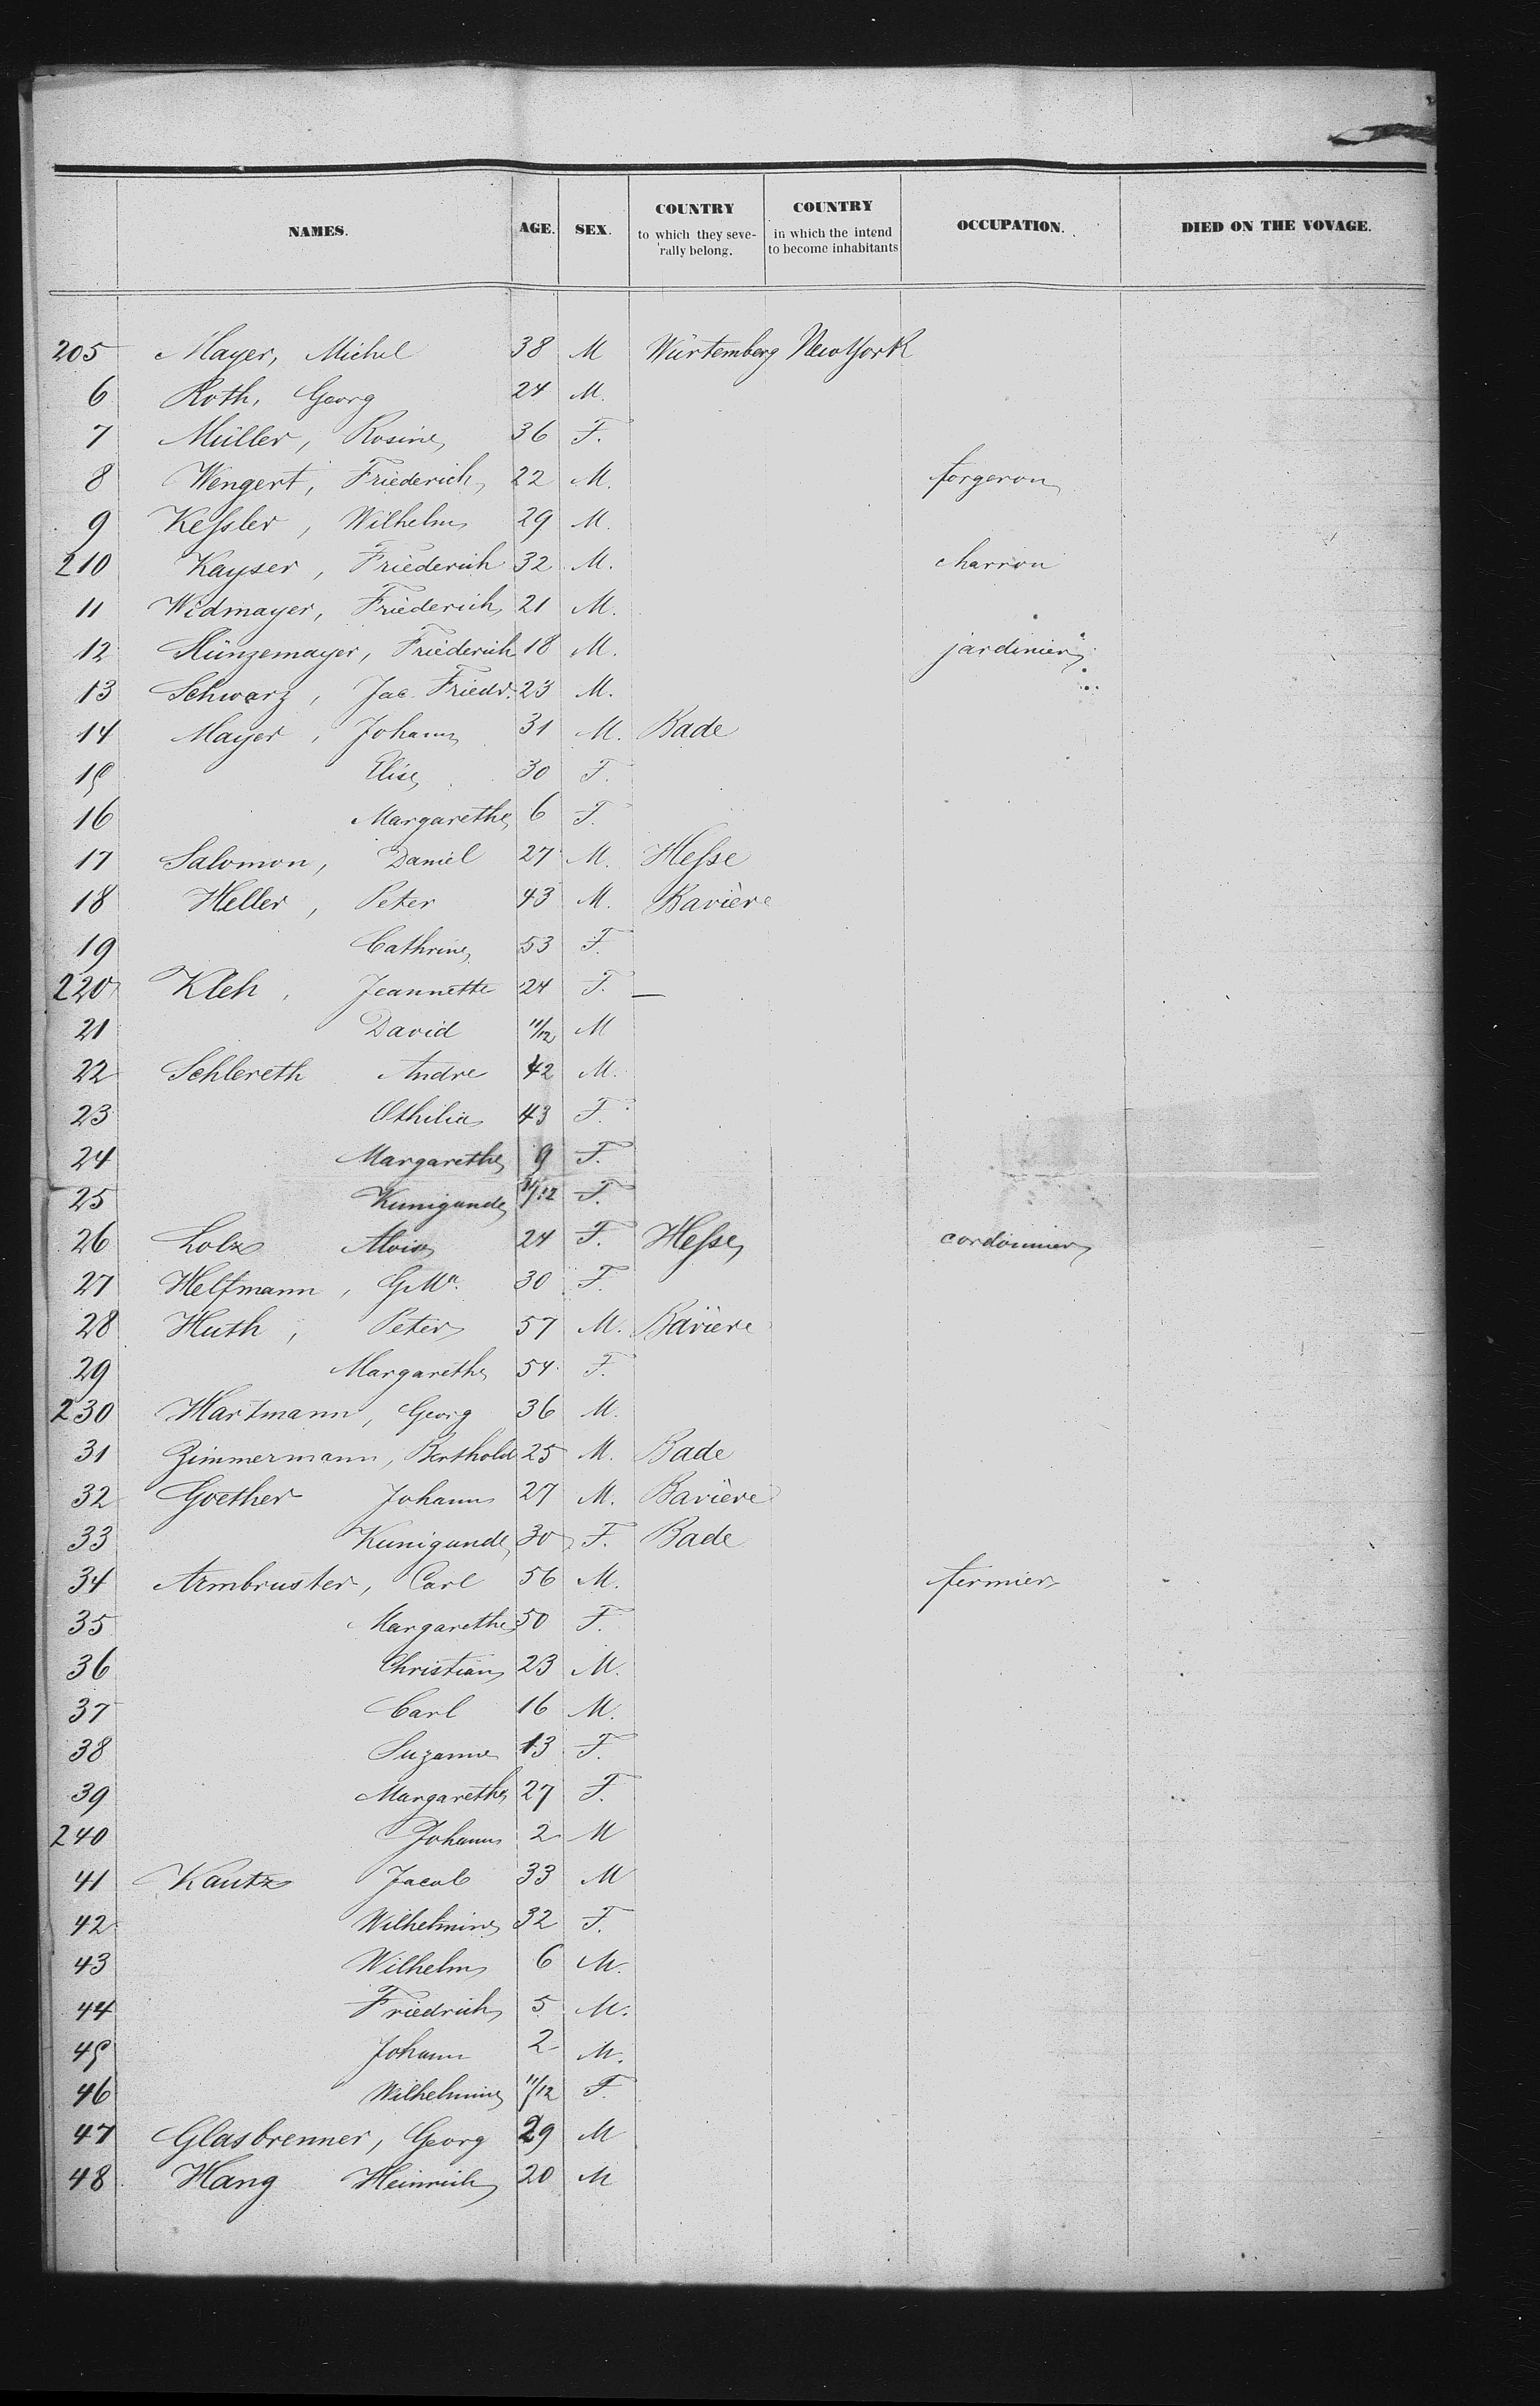 NAMES. AGE. SEX. COUNTRY to which they seve-rally belong. COUNTRY in which the intend to become inhabitants OCCUPATION. DIED ON THE VOVAGE.
205 Mayer, Michel 38 M Würtemberg New York
6 Roth, Georg 24 M.
7 Müller, Rosine 36 F.
8 Wengert, Friederich 22 M. forgeron
9 Kessler, Wilhelm 29 M.
210 Kayser, Friederich 32 M. charron
11 Widmayer, Friederich 21 M.
12 Münzemayer, Friederich 18 M. jardinier
13 Schwarz, Jac. Friedr. 23 M.
14 Mayer, Johann 31 M. Bade
15 Elise 30 F.
16 Margarethe 6 F.
17 Salomon, Daniel 27 M. Hesse
18 Heller, Peter 43 M. Bavière
19 Cathrine 53 F.
220 Kleh, Jeannette 24 F. —
21 David 11/12 M
22 Schlereth Andre 42 M.
23 Othilia 43 F.
24 Margarethe 9 F.
25 Kunigunde 11/12 F.
26 Lolz Alois 24 F. Hesse cordonnier
27 Helfmann, G. Mn. 30 F.
28 Huth, Peter 57 M. Bavière
29 Margarethe 54 F.
230 Hartmann, Georg 36 M.
31 Zimmermann, Berthold 25 M. Bade
32 Goether Johann 27 M. Bavière
33 Kunigunde 30 F. Bade
34 Armbruster, Carl 56 M. fermier
35 Margarethe 50 F.
36 Christian 23 M.
37 Carl 16 M.
38 Suzanne 13 F.
39 Margarethe 27 F.
240 Johann 2 M
41 Kautz Jacob 33 M
42 Wilhelmine 32 F.
43 Wilhelm 6 M.
44 Friedrich 5 M.
45 Johann 2 M.
46 Wilhelmine 11/12 F.
47 Glasbrenner, Georg 29 M
48 Hang Heinrich 20 M